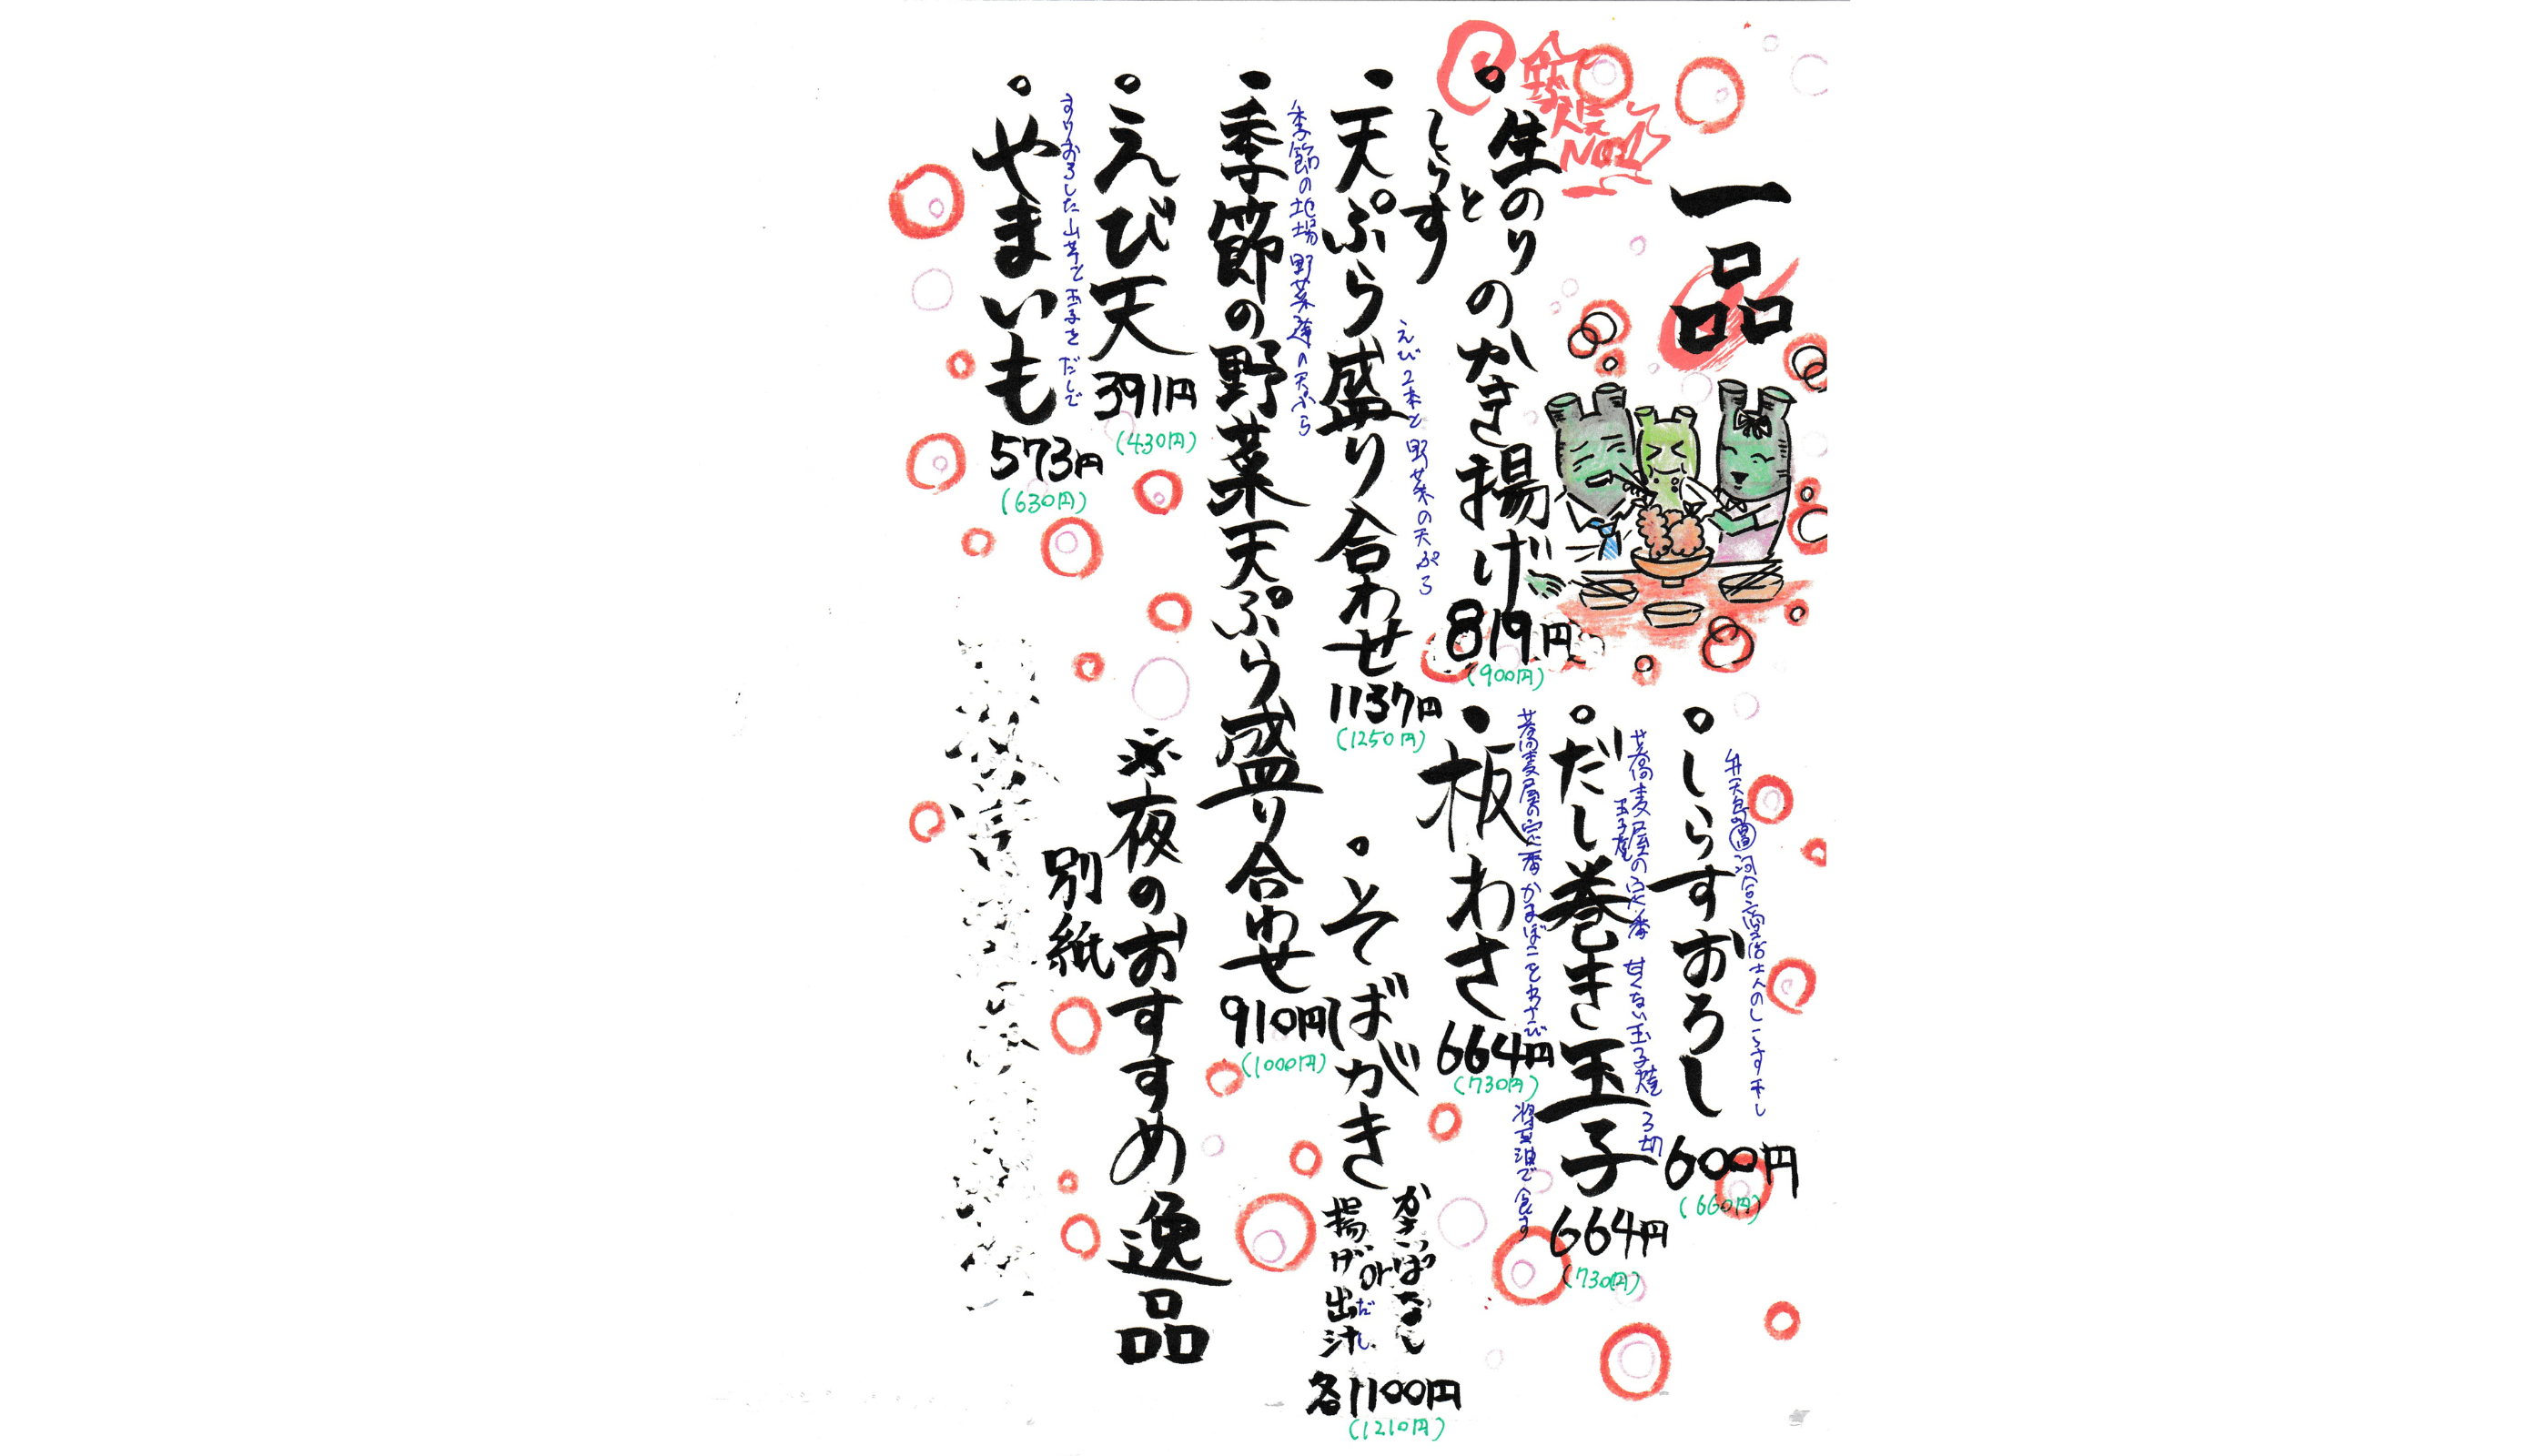 一品
人気
No1
・生のりとしらすのかき揚げ 819円
(900円)
えび2本と野菜の天ぷら
・天ぷら盛り合わせ 1137円
(1250円)
季節の地場野菜達の天ぷら
・季節の野菜天ぷら盛り合わせ 910円
(1000円)
・えび天 391円
(430円)
すりおろした山芋と玉子をだしで
・やまいも 573円
(630円)
しらす干し
・しらすおろし 600円
(660円)
蕎麦屋の定番 甘くない玉子焼 3切
玉子焼
・だし巻き玉子 664円
(730円)
蕎麦屋の定番 かまぼことわさび 醤油で食す
・板わさ 664円
(730円)
・そばがき
かきっぱなし
or
揚げ出汁
だし
各1100円
(1210円)
※夜のおすすめ逸品
別紙